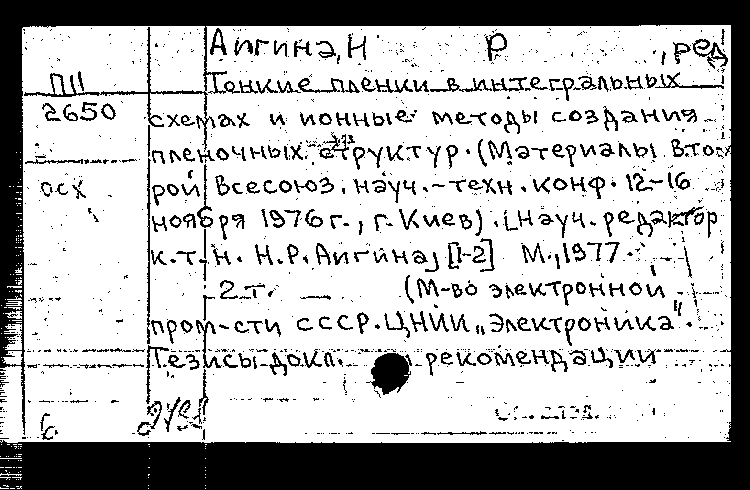 Аигина, Н Р , ред
ПII Тонкие пленки в интегральных
2650 схемах и ионные методы создания
пленочных структур. (Материалы Вто-
осх рой Всесоюз. науч.-техн. конф. 12-16
ноября 1976 г., г. Киев). [Науч. редактор
к.т.н. Н.Р. Аигина] [1-2] М., 1977.
2 т. (М-во электронной
пром-сти СССР. ЦНИИ „Электроника".
Тезисы докл. рекомендации
б